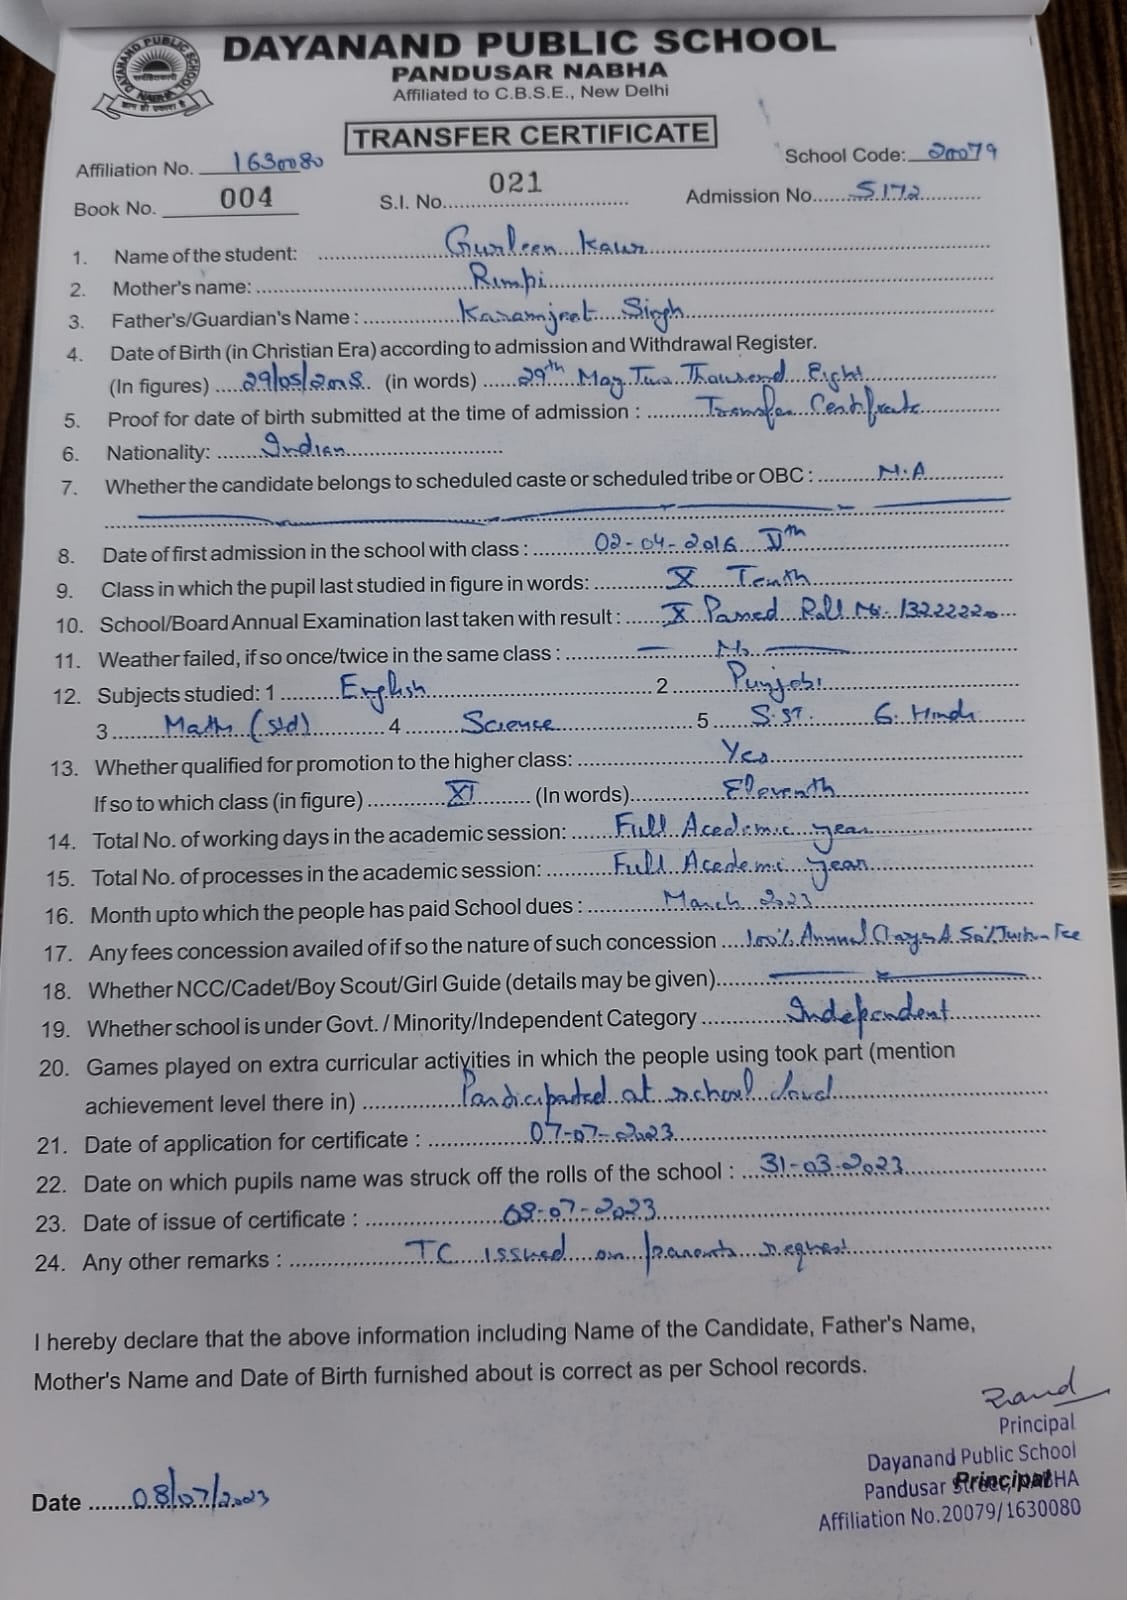 DAYANAND PUBLIC SCHOOL
PANDUSAR NABHA
Affiliated to C.B.S.E., New Delhi
DAYANAND PUBLIC SCHOOL
NABHA
TRANSFER CERTIFICATE
Affiliation No. 1630080 School Code: 20079
Book No. 004 S.I. No. 021 Admission No. 5172
1. Name of the student: Gurleen Kaur
2. Mother's name: Rimpi
3. Father's/Guardian's Name : Karamjeet Singh
4. Date of Birth (in Christian Era) according to admission and Withdrawal Register.
(In figures) 29/05/2008 (in words) 29th May Two Thousend Eight
5. Proof for date of birth submitted at the time of admission : Transfer Certificate
6. Nationality: Indian
7. Whether the candidate belongs to scheduled caste or scheduled tribe or OBC : N.A
8. Date of first admission in the school with class : 02-04-2016
9. Class in which the pupil last studied in figure in words: X Tenth
10. School/Board Annual Examination last taken with result : X Passed Roll No. 13222220
11. Weather failed, if so once/twice in the same class : No
12. Subjects studied: 1 English 2 Punjabi
3 Maths (Std) 4 Science 5 S.ST. 6. Hindi
13. Whether qualified for promotion to the higher class: Yes
If so to which class (in figure) XI (In words) Eleventh
14. Total No. of working days in the academic session: Full Academic year
15. Total No. of processes in the academic session: Full Academic year
16. Month upto which the people has paid School dues : March 2023
17. Any fees concession availed of if so the nature of such concession 100% Annual
18. Whether NCC/Cadet/Boy Scout/Girl Guide (details may be given)
19. Whether school is under Govt. / Minority/Independent Category Independent
20. Games played on extra curricular activities in which the people using took part (mention
achievement level there in) Participated at school
21. Date of application for certificate : 07-07-2023
22. Date on which pupils name was struck off the rolls of the school : 31-03-2023
23. Date of issue of certificate : 08-07-2023
24. Any other remarks : TC issued on parents request
I hereby declare that the above information including Name of the Candidate, Father's Name,
Mother's Name and Date of Birth furnished about is correct as per School records.
Principal
Dayanand Public School
Pandusar Street, NABHA
Principal
Affiliation No.20079/1630080
Date 08/07/2023